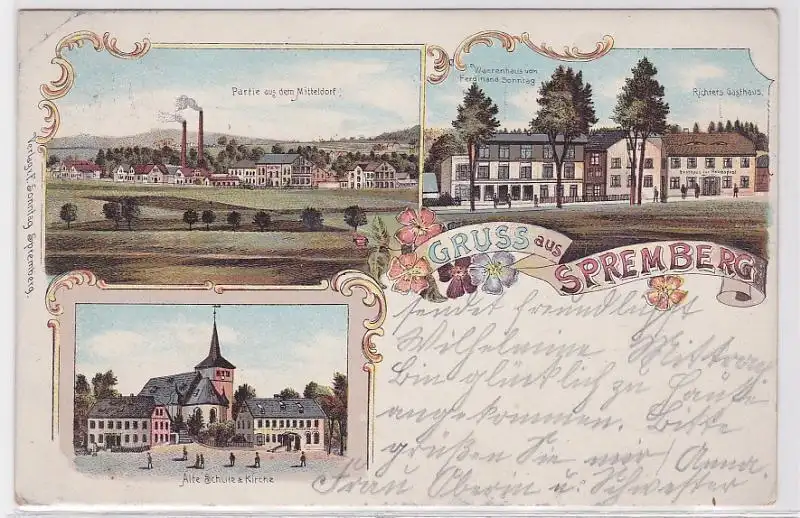 Partie aus dem Mitteldorf.
Waarenhaus von
Ferdinand Sonntag
Richters Gasthaus.
Verlag F. Sonntag Spremberg.
GRUSS aus
SPREMBERG
Alte Schule & Kirche
sendet freundlichst
Wilhelmine
Bin glücklich zu Hause
angekommen. Bitte
grüßen Sie mir Anna
Frau Oberin u. Schwester